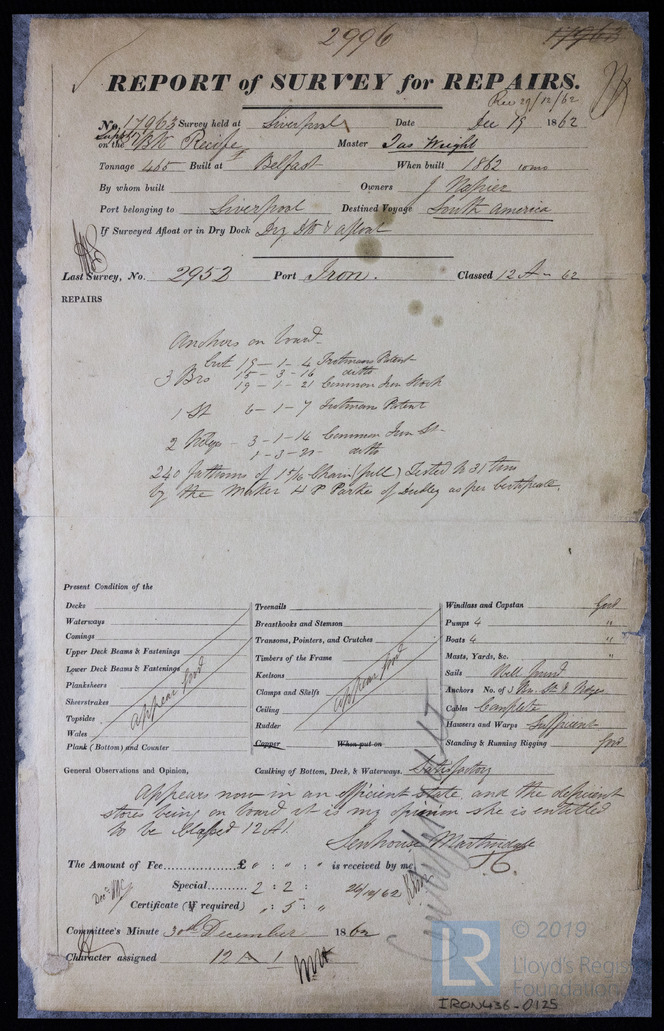 2996
17963
REPORT of SURVEY for REPAIRS.
Rec 29/12/62
No. 17963 Survey held at Liverpool Date Dec 19 1862
on the Bk Recife Master Jas Wright
Tonnage 465 Built at Belfast When built 1862
By whom built Owners J. Napier
Port belonging to Liverpool Destined Voyage South America
If Surveyed Afloat or in Dry Dock Dry Dk & afloat
Last Survey, No. 2952 Port Iron. Classed 12 A - 62
REPAIRS
Anchors on board.
3 Brs Cwt 19 - 1 - 4 Trotmans Patent
15 - 3 - 16 ditto
19 - 1 - 21 Common Iron Stock
1 St 6 - 1 - 7 Trotmans Patent
2 Kedges - 3 - 1 - 14 Common Iron St.
1 - 3 - 25 ditto
240 fathoms of 1 5/16 Chain (full) Tested to 31 tons
by the Maker H P Parkes of Dudley as per Certificate.
Present Condition of the
Decks
Waterways
Comings
Upper Deck Beams & Fastenings
Lower Deck Beams & Fastenings
Planksheers
Sheerstrakes
Topsides
Wales
Plank (Bottom) and Counter
appear good
Treenails
Breasthooks and Stemson
Transoms, Pointers, and Crutches
Timbers of the Frame
Keelsons
Clamps and Shelfs
Ceiling
Rudder
Copper When put on
appear good
Windlass and Capstan good
Pumps 4 "
Boats 4 "
Masts, Yards, &c. "
Sails Well found
Anchors No. of 3 Br. St & Kedges
Cables Complete
Hawsers and Warps Sufficient
Standing & Running Rigging good
General Observations and Opinion, Caulking of Bottom, Deck, & Waterways. Satisfactory
Appears now in an efficient state, and the deficient
stores being on board it is my opinion she is entitled
to be Classed 12 A1.
Senhouse Martindale
The Amount of Fee £ " : " : " is received by me,
Special 2 : 2 :
Certificate (If required) " : 5 : "
Committee's Minute 30th December 1862
Character assigned 12 A 1
© 2019
LR
Lloyd's Regis
Foundation
IRON436-0125